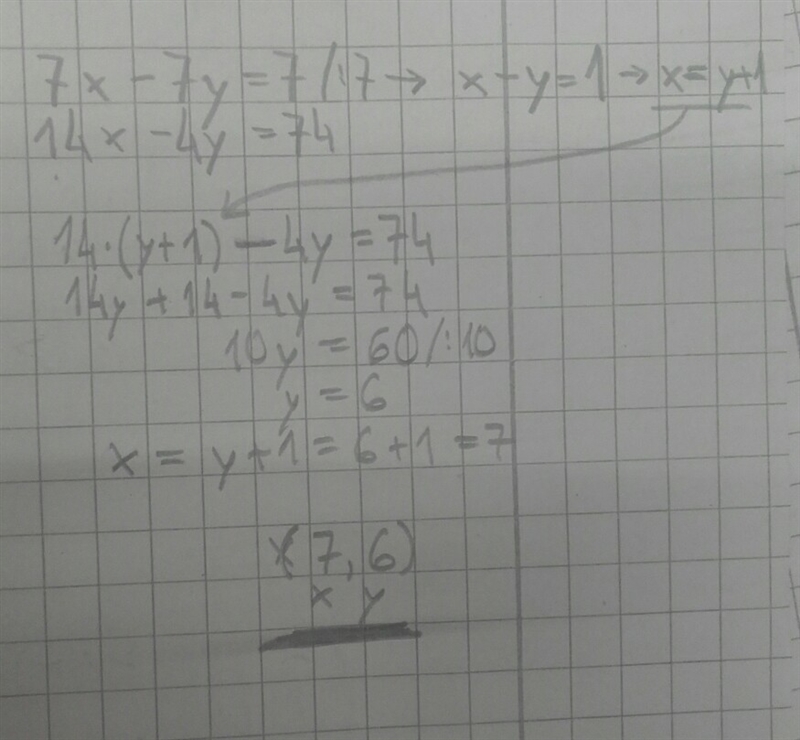 7x - 7y = 7 /:7 → x - y = 1 → x = y+1
14x - 4y = 74
14·(y+1) - 4y = 74
14y + 14 - 4y = 74
10y = 60 /:10
y = 6
x = y+1 = 6+1 = 7
(7, 6)
x y